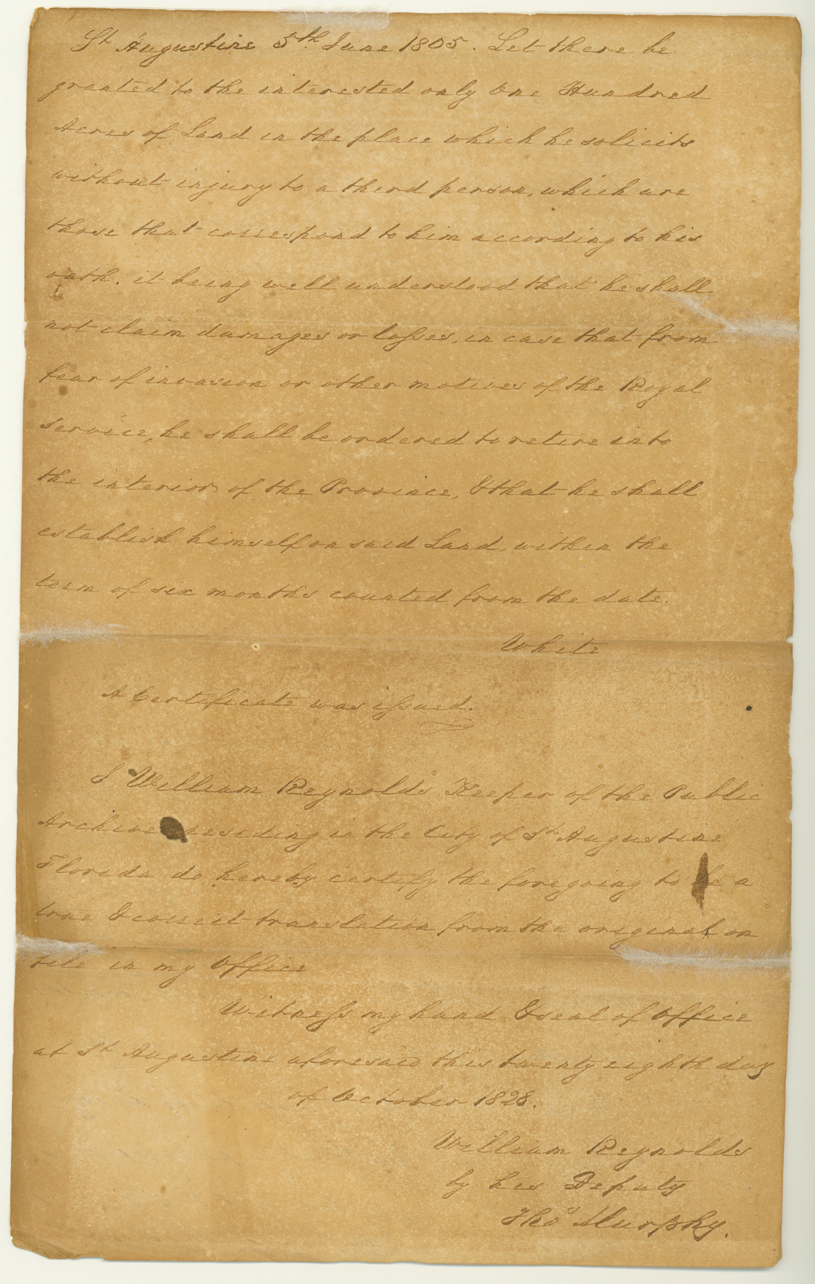 St. Augustine 5th June 1805. Let there be
granted to the interested only One Hundred
Acres of Land in the place which he solicits
without injury to a third person, which are
those that correspond to him according to his
oath. it being well understood that he shall
not claim damages or losses, in case that from
fear of invasion or other motives of the Royal
service, he shall be ordered to retire into
the interior of the Province, & that he shall
establish himself on said Land, within the
term of six months counted from the date.
White
A Certificate was issued.
I William Reynolds Keeper of the Public
Archives residing in the City of St Augustine
Florida do hereby certify the foregoing to be a
true & correct translation from the original on
file in my Office
Witness my hand & seal of Office
at St Augustine aforesaid this twenty eighth day
of October 1828.
William Reynolds
by his Deputy
Thos Murphy.